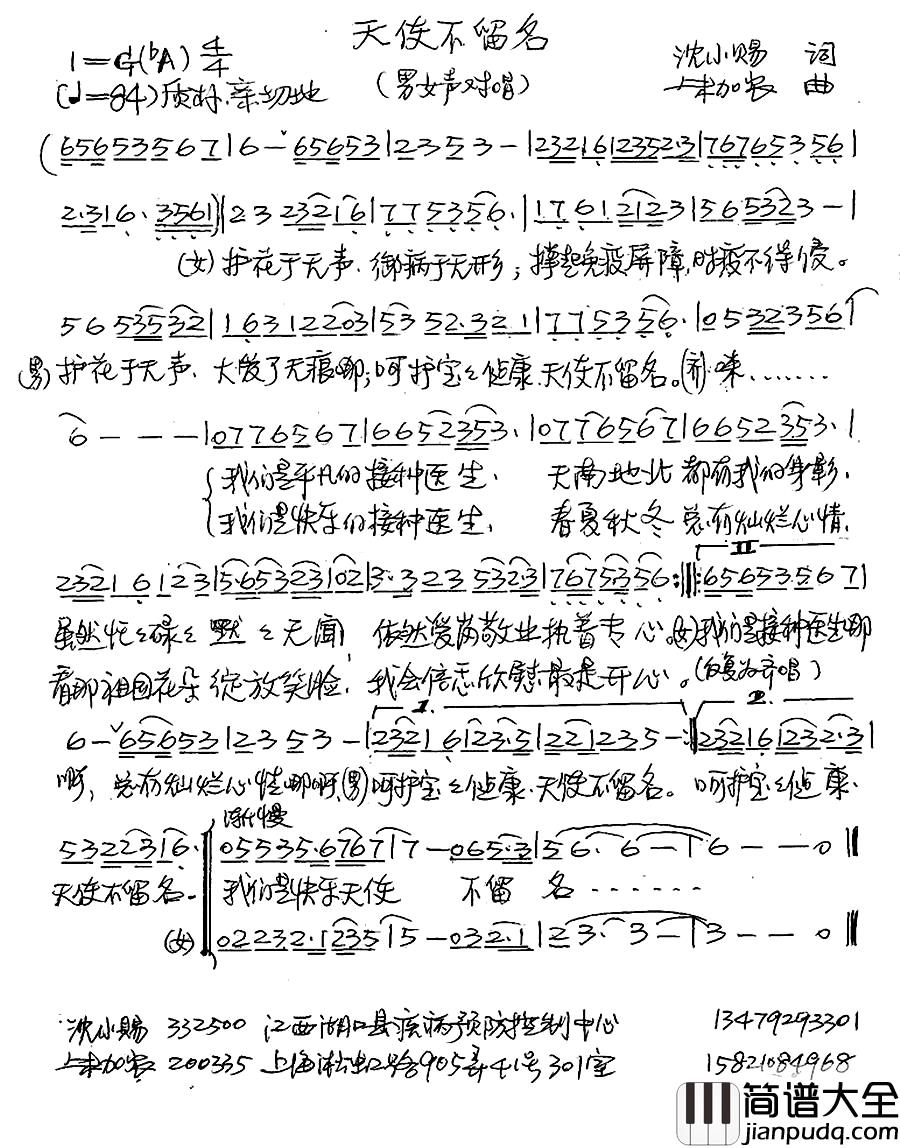 天使不留名
1=G(bA) 4/4 沈小赐 词
(♩=84)质朴.亲切地 (男女声对唱) 朱加农 曲
(656535671 6-ˇ65653|2353-|2321612352·3|767653561
2·316·3561)|23232 16|775356·|17612123|5653 23-|
(女)护花于无声.御病于无形;撑起免疫屏障,时疫不得侵。
56535 32|16312203|5352·321|775356·|0532 356|
(男)护花于无声、大爱了无痕哪;呵护宝々健康.天使不留名。(齐)唻.......
6---|0776567|6652353·|0776567|6652353·|
我们是平凡的接种医生、 天南地北都有我的身影、
我们是快乐的接种医生、 春夏秋冬总有灿烂心情、
2321 6123|5·6532302|3·3235323|767535 6:‖:656535671 II
虽然忙々碌々默々无闻, 依然爱岗敬业执着专心。(女)我们是接种医生哪
看那祖国花朵绽放笑脸, 我会倍感欣慰最是开心。(反复为齐唱)
I. 2.
6-ˇ65653|2353-|2321 6123·5|221235-:‖232161232·3|
啊,总有灿烂心情哪啊,(男)呵护宝々健康.天使不留名。呵护宝々健康.
渐慢
5322316·‖05535·67671 7-065·3|56·6-|6--0‖
天使不留名。 我们是快乐天使 不留 名......
(女) 02232·1235|5-032·1|23·3-|3--0‖
沈小赐 332500 江西湖口县疾病预防控制中心 13479293301
朱加农 200335 上海淞虹路905弄41号301室 15821084968
简谱大全
jianpudq.com